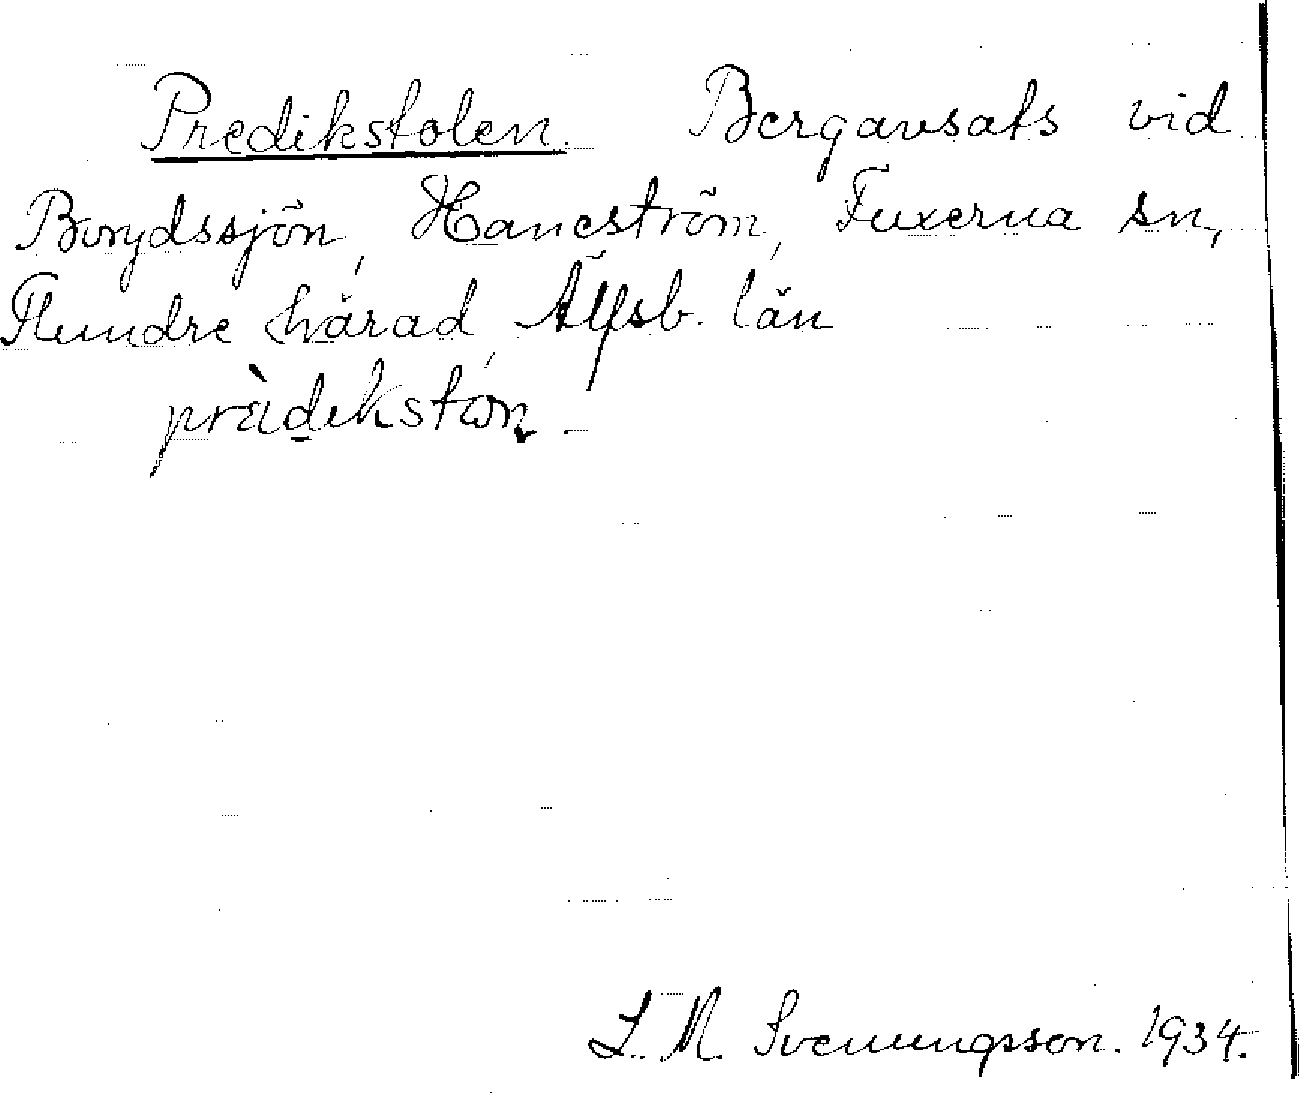 Predikstolen. Bergavsats vid
Borydssjön, Haneström, Fuxerna sn,
Flundre härad, Älfsb. län
prädekstωn
L. M. Svenungsson. 1934.